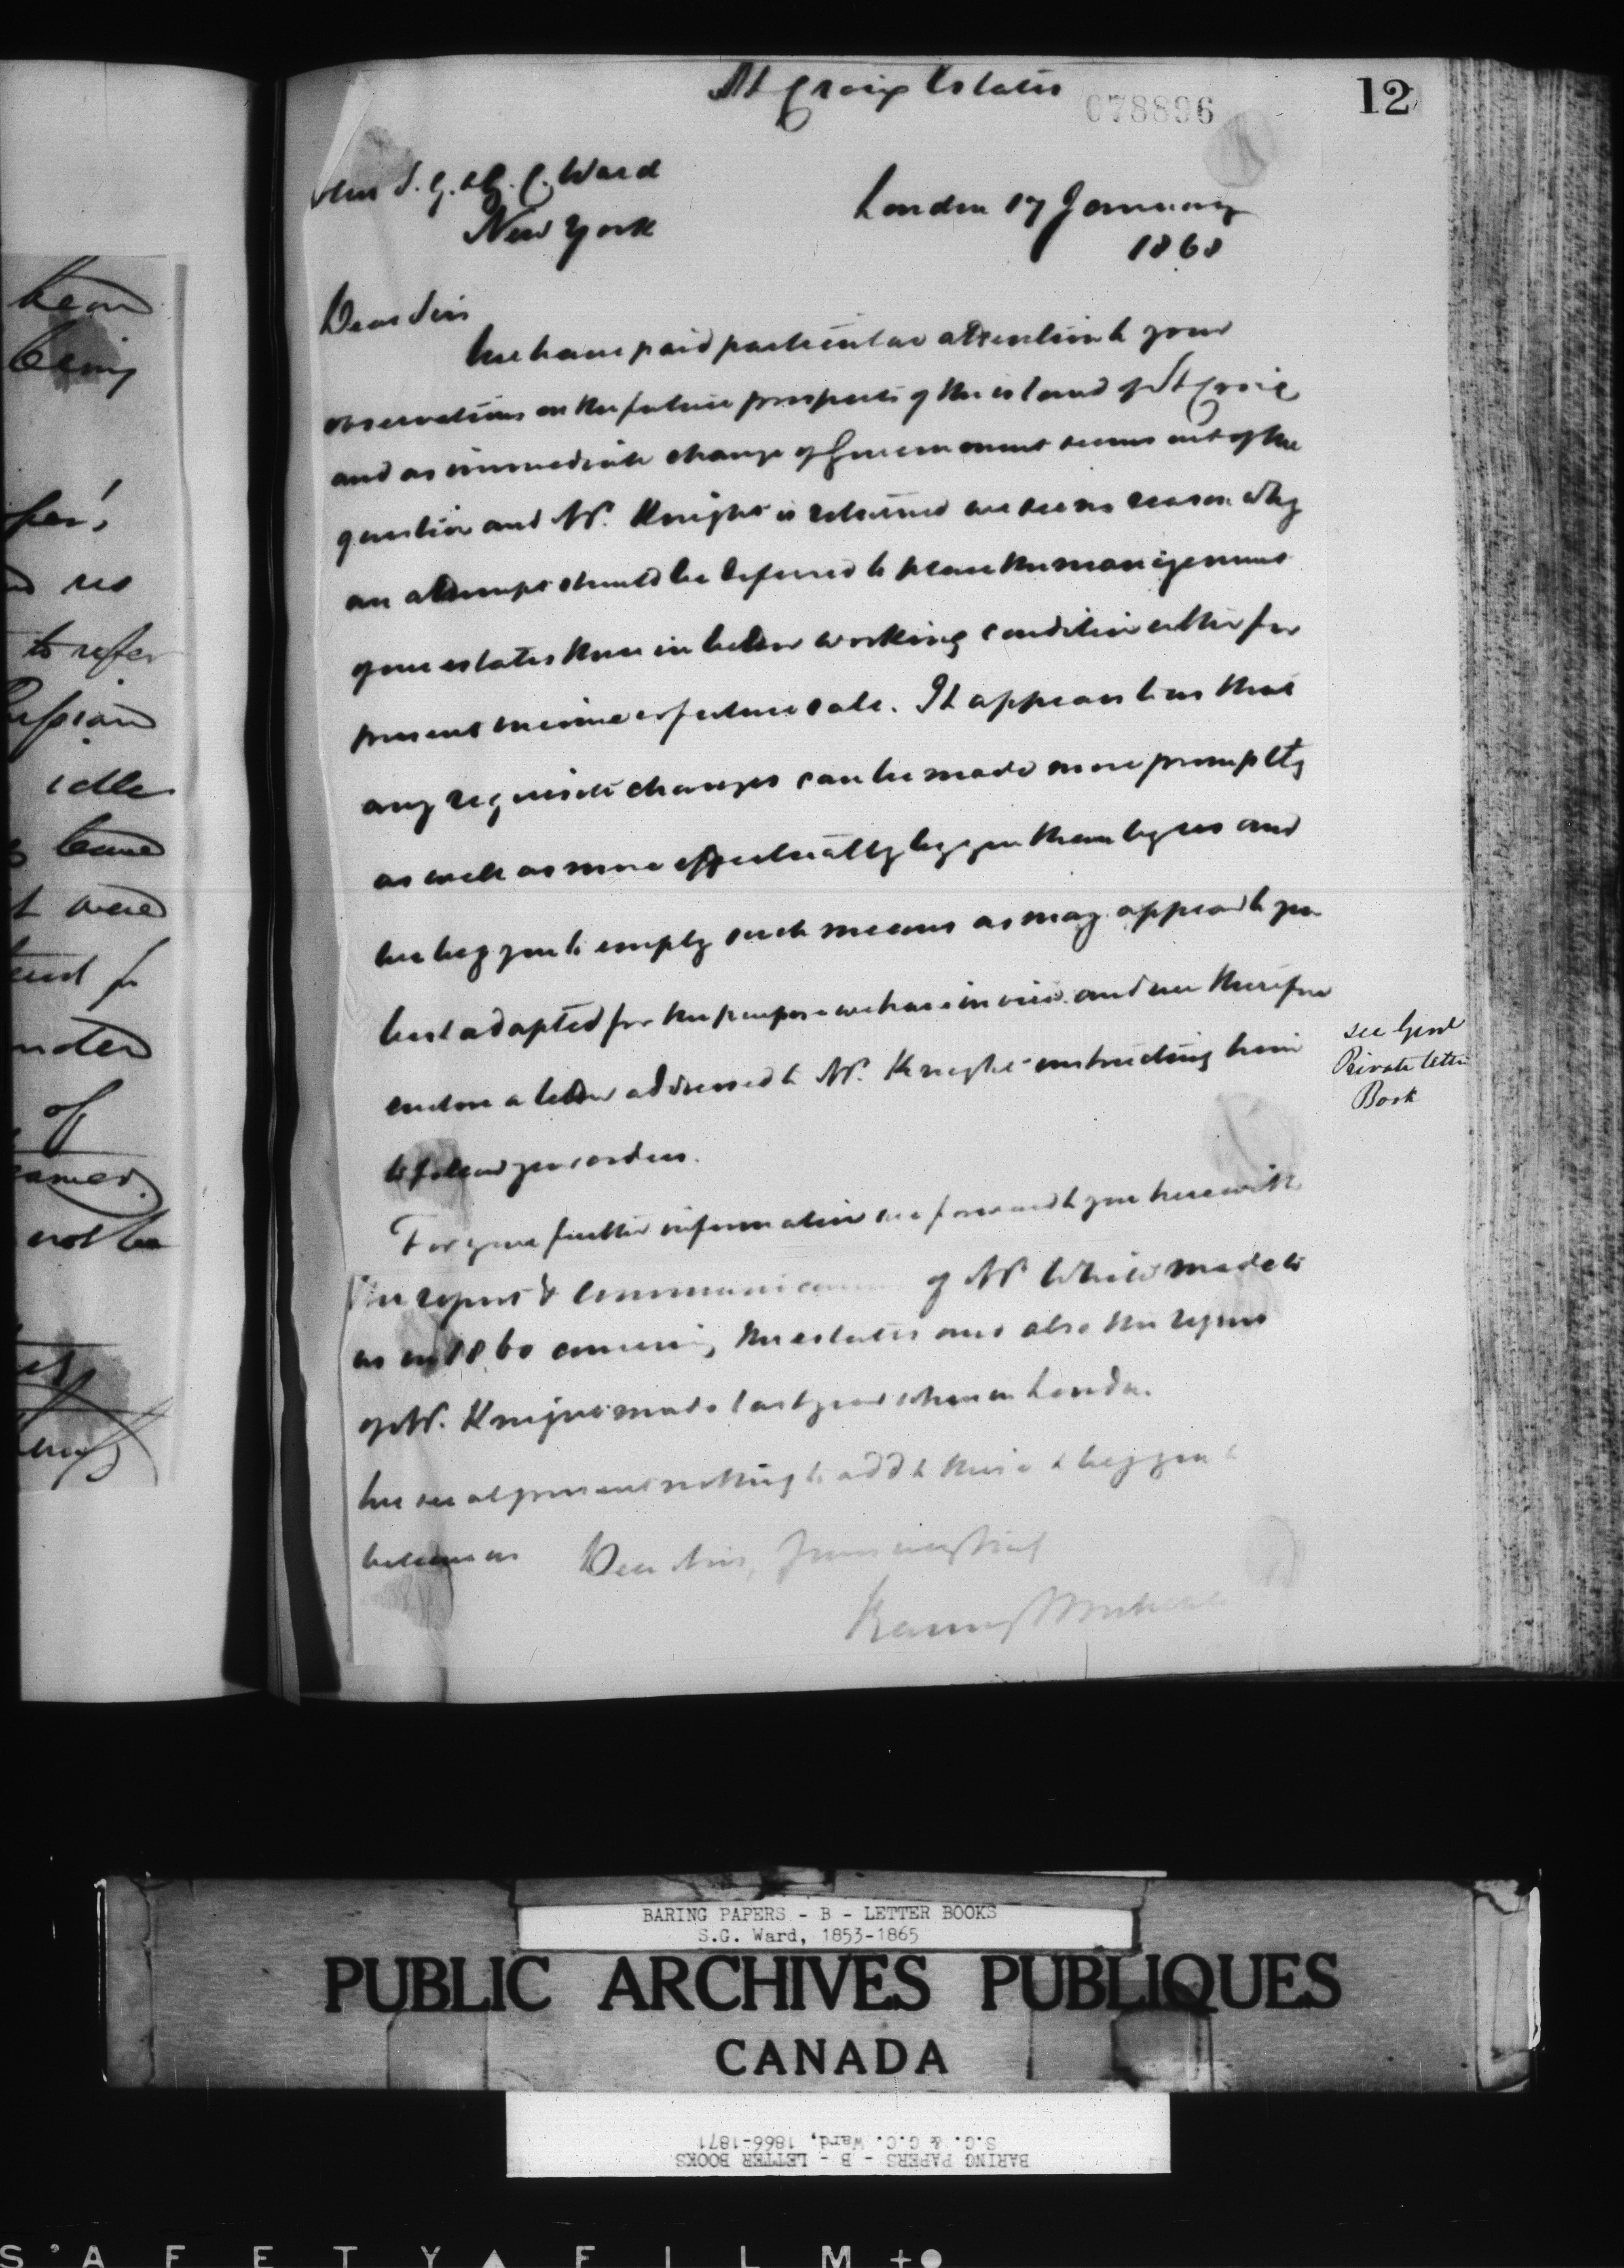 St Croix Estates
078896
12
S. G. & G. C. Ward
New York
London 17 January
1868
Dear Sirs
We have paid particular attention to your
observations on the future prospects of the island of St Croix
and as immediate change of Government seems out of the
question and Mr. Knight is returned we see no reason why
an attempt should be deferred to place the management
of our estates there in better working condition either for
present income or future sale. It appears to us that
any requisite changes can be made more promptly
as well as more effectually by you than by us and
we beg you to employ such means as may appear to you
best adapted for the purpose we have in view and we therefore
enclose a letter addressed to Mr. Knight instructing him
to follow your orders.
see Genl
Private letter
Book
For your further information we forward to you herewith
the report & of Mr White made to
us in 1860 the estates and also the report
of Mr. Knight made last year when in London.
We see at present nothing to add to this & beg you to
believe us Dear Sirs,
been
being
per's
no
to refer
Russian
idle
leave
t were
of
not be
BARING PAPERS - B - LETTER BOOKS
S.G. Ward, 1853-1865
PUBLIC ARCHIVES PUBLIQUES
CANADA
BARING PAPERS - B - LETTER BOOKS
S.G. & G.C. Ward, 1866-1871
S'AFETY▲FILM+●